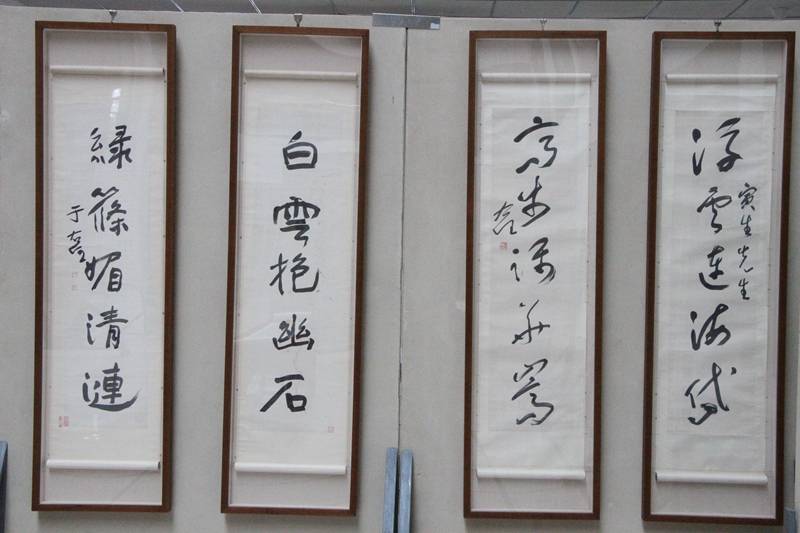 寅生先生
浮雲連海岱
高步華嵩
右任
白雲抱幽石
緑篠媚清漣
于右任